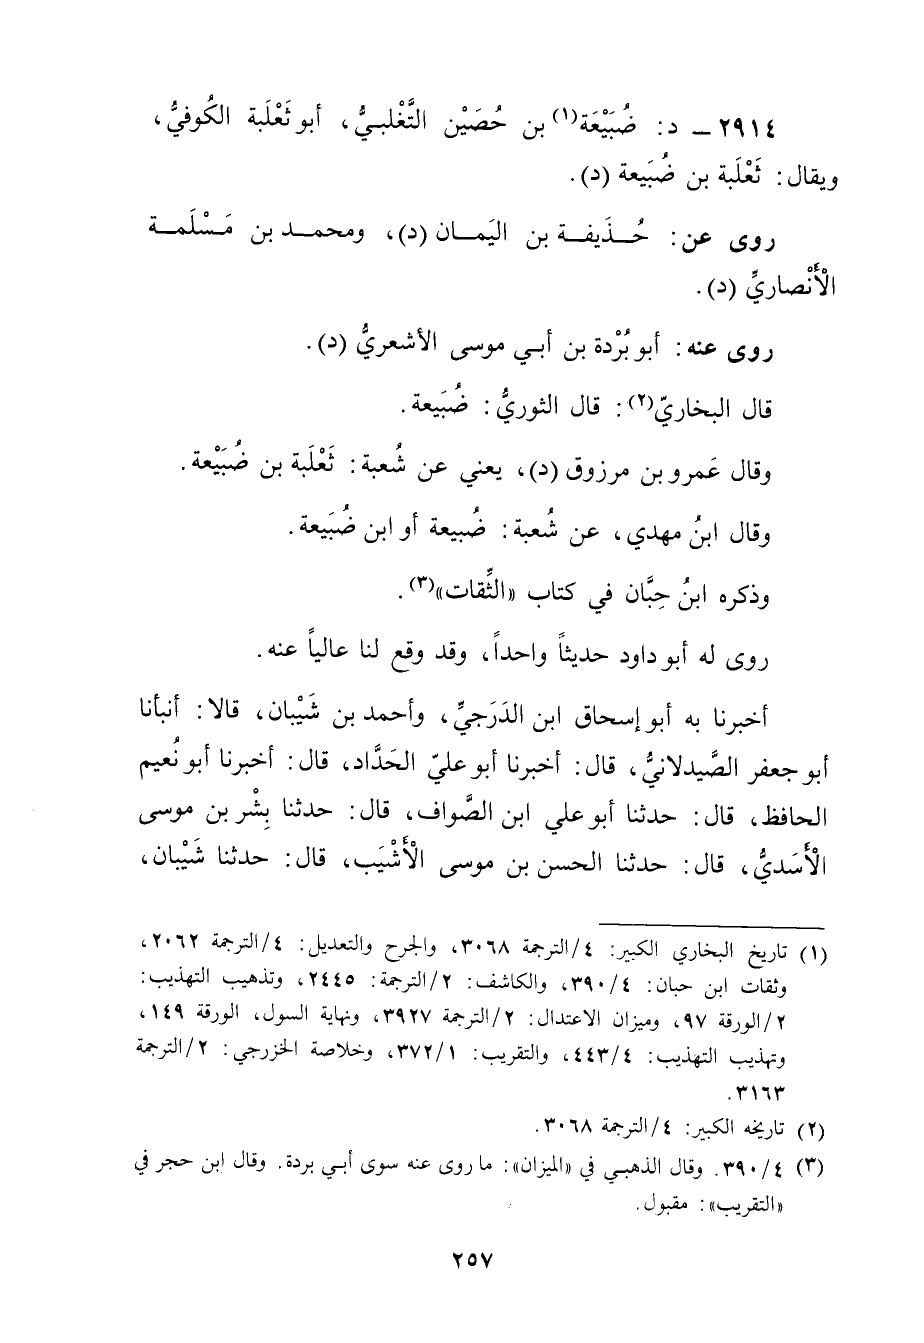 ٢٩١٤ ـ د: ضُبَيْعَة(١) بن حُصَيْن التَّغْلبـيُّ، أبو ثَعْلَبة الكُوفيُّ،
ويقال: ثَعْلَبة بن ضُبَيعة (د).
روى عن: حُـذَيفـة بن اليَمـان (د)، ومحمـد بن مَـسْلَمـة
الْأَنْصاريِّ (د).
روى عنه: أبو بُرْدة بن أبـي موسى الأشعريُّ (د).
قال البخاريّ(٢): قال الثوريُّ: ضُبَيعة.
وقال عَمرو بن مرزوق (د)، يعني عن شُعبة: ثَعْلَبة بن ضُبَيْعة.
وقال ابنُ مهدي، عن شُعبة: ضُبيعة أو ابن ضُبَيعة.
وذكره ابنُ حِبَّان في كتاب «الثِّقات»(٣).
روى له أبو داود حديثاً واحداً، وقد وقع لنا عالياً عنه.
أخبرنا به أبو إسحاق ابن الدَرَجيِّ، وأحمد بن شَيْبان، قالا: أنبأنا
أبو جعفر الصَّيدلانيُّ، قال: أخبرنا أبو عليّ الحَدَّاد، قال: أخبرنا أبو نُعيم
الحافظ، قال: حدثنا أبو علي ابن الصَّواف، قال: حدثنا بِشْر بن موسى
الْأَسَديُّ، قال: حدثنا الحسن بن موسى الْأَشْيَب، قال: حدثنا شَيْبان،
(١) تاريخ البخاري الكبير: ٤/الترجمة ٣٠٦٨، والجرح والتعديل: ٤/الترجمة ٢٠٦٢،
وثقات ابن حبان: ٣٩٠/٤، والكاشف: ٢/الترجمة: ٢٤٤٥، وتذهيب التهذيب:
٢/الورقة ٩٧، وميزان الاعتدال: ٢/الترجمة ٣٩٢٧، ونهاية السول، الورقة ١٤٩،
وتهذيب التهذيب: ٤٤٣/٤، والتقريب: ٣٧٢/١، وخلاصة الخزرجي: ٢/الترجمة
٣١٦٣.
(٢) تاريخه الكبير: ٤/الترجمة ٣٠٦٨.
(٣) ٣٩٠/٤. وقال الذهبـي في «الميزان»: ما روى عنه سوى أبـي بردة. وقال ابن حجر في
«التقريب»: مقبول.
٢٥٧